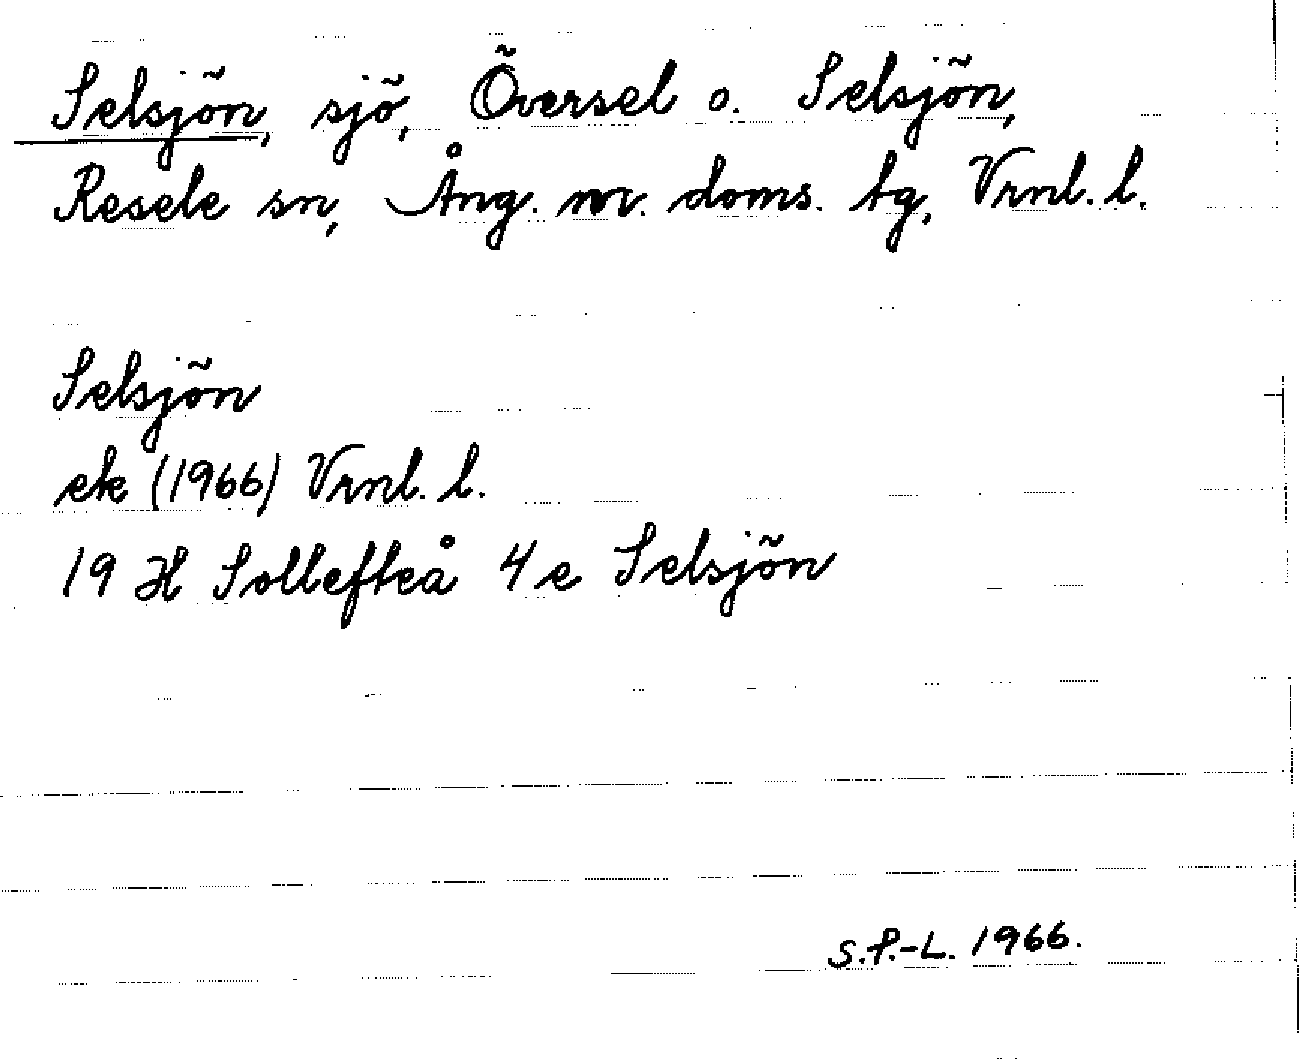 Selsjön, sjö, Översel o. Selsjön,
Resele sn, Ång. nr. doms. tg, Vrnl. l.
Selsjön
ek (1966) Vrnl. l.
19 H Sollefteå 4 e Selsjön
S.P.-L. 1966.